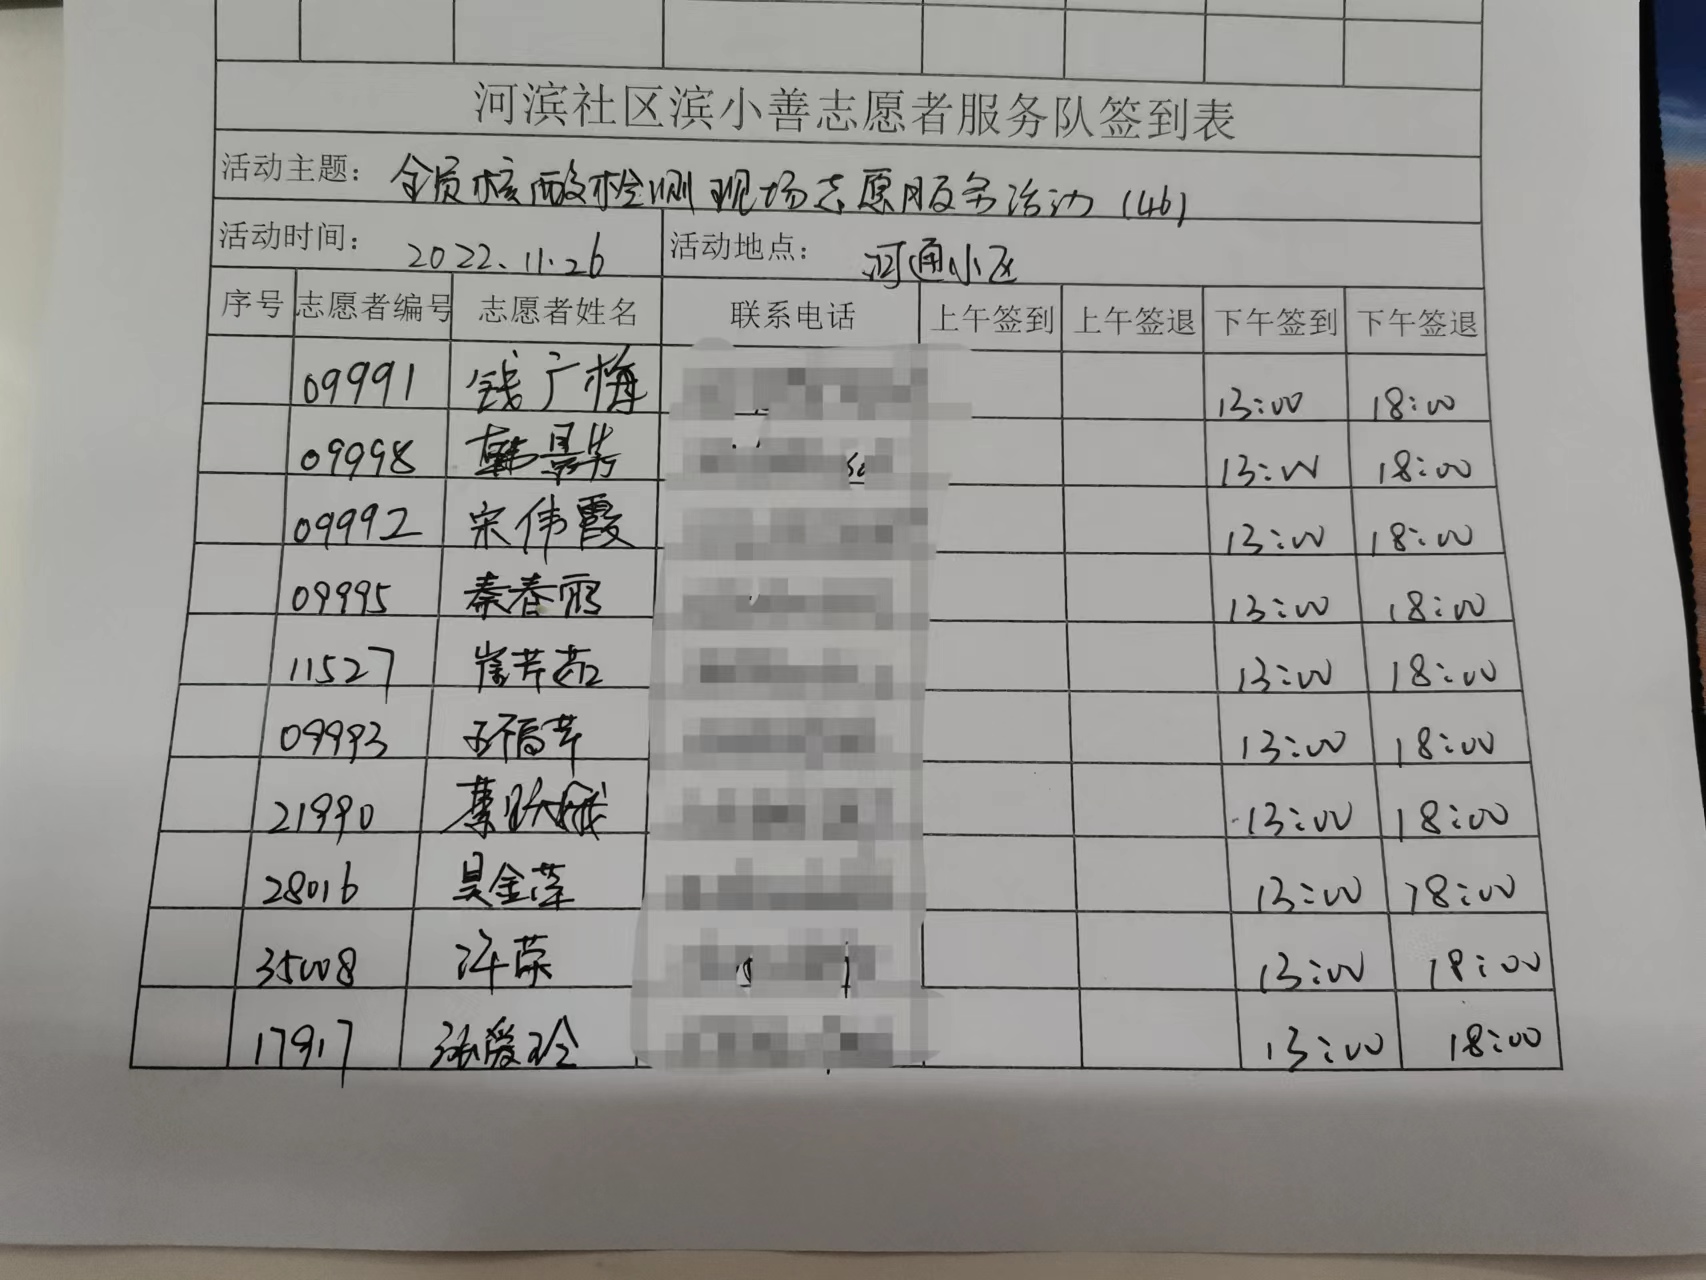 河滨社区滨小善志愿者服务队签到表
活动主题： 全员核酸检测现场志愿服务活动（46）
活动时间： 2022.11.26 活动地点： 河通小区
序号 志愿者编号 志愿者姓名 联系电话 上午签到 上午签退 下午签到 下午签退
09991 钱广梅 13:00 18:00
09998 韩景芳 13:00 18:00
09992 宋伟霞 13:00 18:00
09995 秦春丽 13:00 18:00
11527 崔芹茹 13:00 18:00
09993 王福芹 13:00 18:00
21990 13:00 18:00
28016 吴金萍 13:00 18:00
35008 许荣 13:00 18:00
17917 张爱玲 13:00 18:00